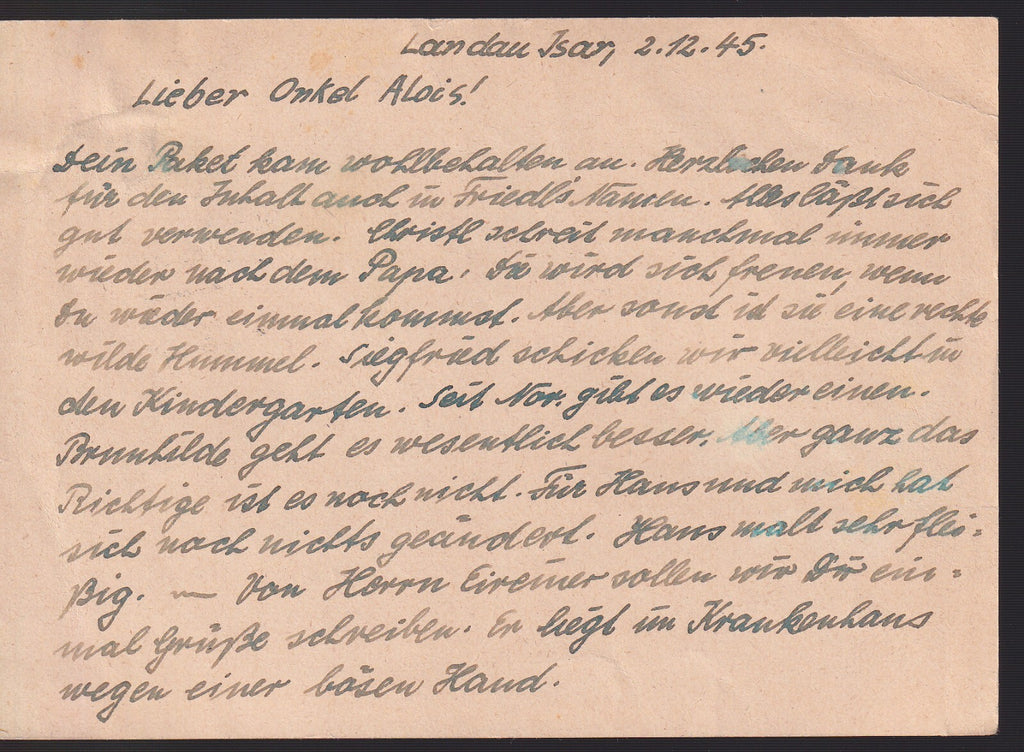 Landau Isar, 2.12.45.
Lieber Onkel Alois!
Dein Paket kam wohlbehalten an. Herzlichen Dank
für den Inhalt auch in Friedl's Namen. Alles läßt sich
gut verwenden. Christl schreit manchmal immer
wieder nach dem Papa. Sie wird sich freuen, wenn
Du wieder einmal kommst. Aber sonst ist sie eine rechte
wilde Hummel. Siegfried schicken wir vielleicht in
den Kindergarten. Seit Nov. gibt es wieder einen.
Brunhilde geht es wesentlich besser. Aber ganz das
Richtige ist es noch nicht. Für Hans und mich hat
sich noch nichts geändert. Hans malt sehr flei=
ßig. — Von Herrn sollen wir Dir ein=
mal Grüße schreiben. Er liegt im Krankenhaus
wegen einer bösen Hand.